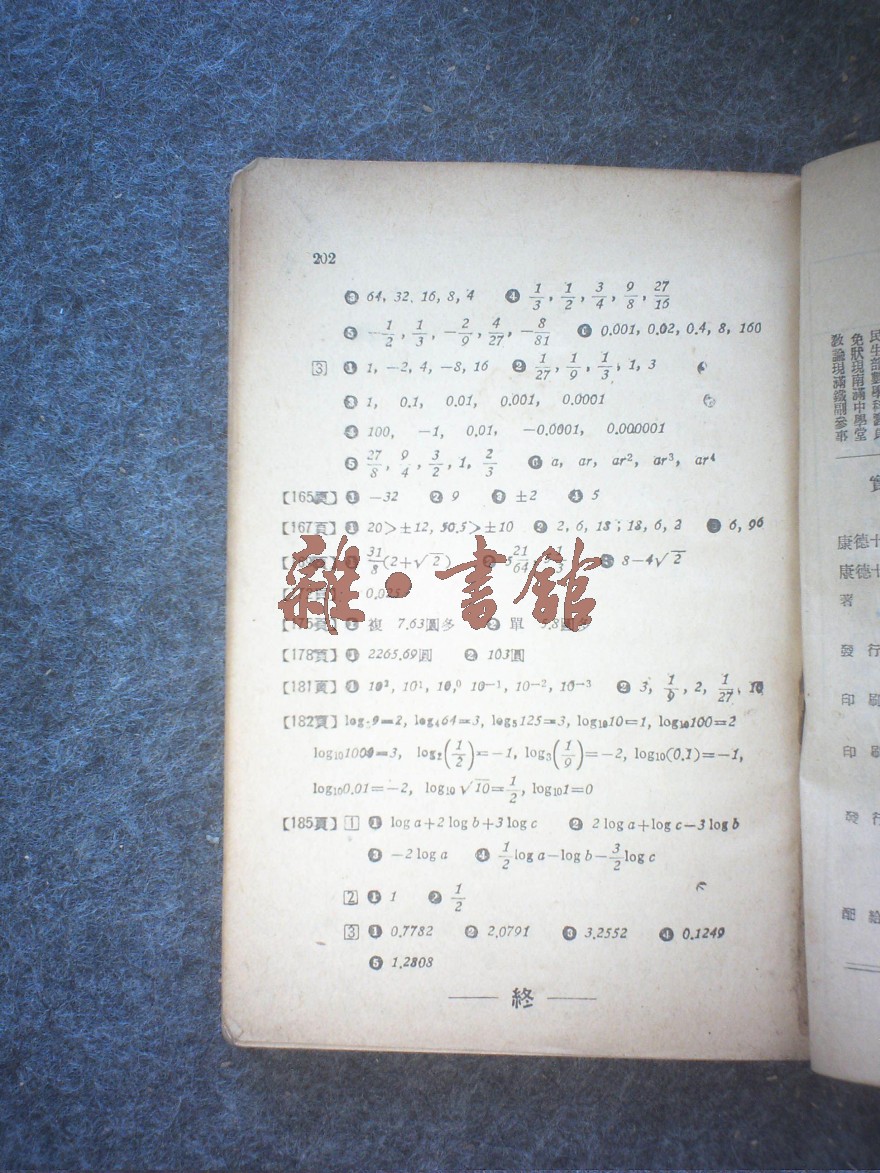 202
❸ 64, 32, 16, 8, 4 ❹ 1/3, 1/2, 3/4, 9/8, 27/16
❺ −1/2, 1/3, −2/9, 4/27, −8/81 ❻ 0.001, 0.02, 0.4, 8, 160
[3] ❶ 1, −2, 4, −8, 16 ❷ 1/27, 1/9, 1/3, 1, 3
❸ 1, 0.1, 0.01, 0.001, 0.0001
❹ 100, −1, 0.01, −0.0001, 0.000001
❺ 27/8, 9/4, 3/2, 1, 2/3 ❻ a, ar, ar², ar³, ar⁴
【165頁】❶ −32 ❷ 9 ❸ ±2 ❹ 5
【167頁】❶ 20>±12, 50.5>±10 ❷ 2, 6, 18; 18, 6, 2 ❸ 6, 96
❶ 31/8(2+√2) ❷ 5 21/64, ❸ 8−4√2
0.025
【175頁】❶ 複 7.63圓多 ❷ 單
雜·書館
【178頁】❶ 2265.69圓 ❷ 103圓
【181頁】❶ 10², 10¹, 10,⁰ 10⁻¹, 10⁻², 10⁻³ ❷ 3, 1/9, 2, 1/27, 10
【182頁】log₃9=2, log₄64=3, log₅125=3, log₁₀10=1, log₁₀100=2
log₁₀1000=3, log₂(1/2)=−1, log₃(1/9)=−2, log₁₀(0.1)=−1,
log₁₀0.01=−2, log₁₀√10=1/2, log₁₀1=0
【185頁】[1] ❶ log a+2 log b+3 log c ❷ 2 log a+log c−3 log b
❸ −2 log a ❹ 1/2 log a−log b−3/2 log c
[2] ❶ 1 ❷ 1/2
[3] ❶ 0.7782 ❷ 2.0791 ❸ 3.2552 ❹ 0.1249
❺ 1.2808
—— 終 ——
免狀現南滿中學堂
教諭現滿鐵副參事
康德十
康德十
著
發行
印刷
印刷
發行
配給